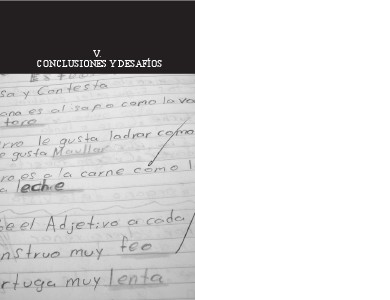 V.
CONCLUSIONES Y DESAFÍOS
sa y Contesta
ona es al sapo como la va
toro
rro le gusta ladrar como
e gusta Maullar
ro es a la carne como l
a leche
be el Adjetivo a cada
nstruo muy feo
rtuga muy lenta